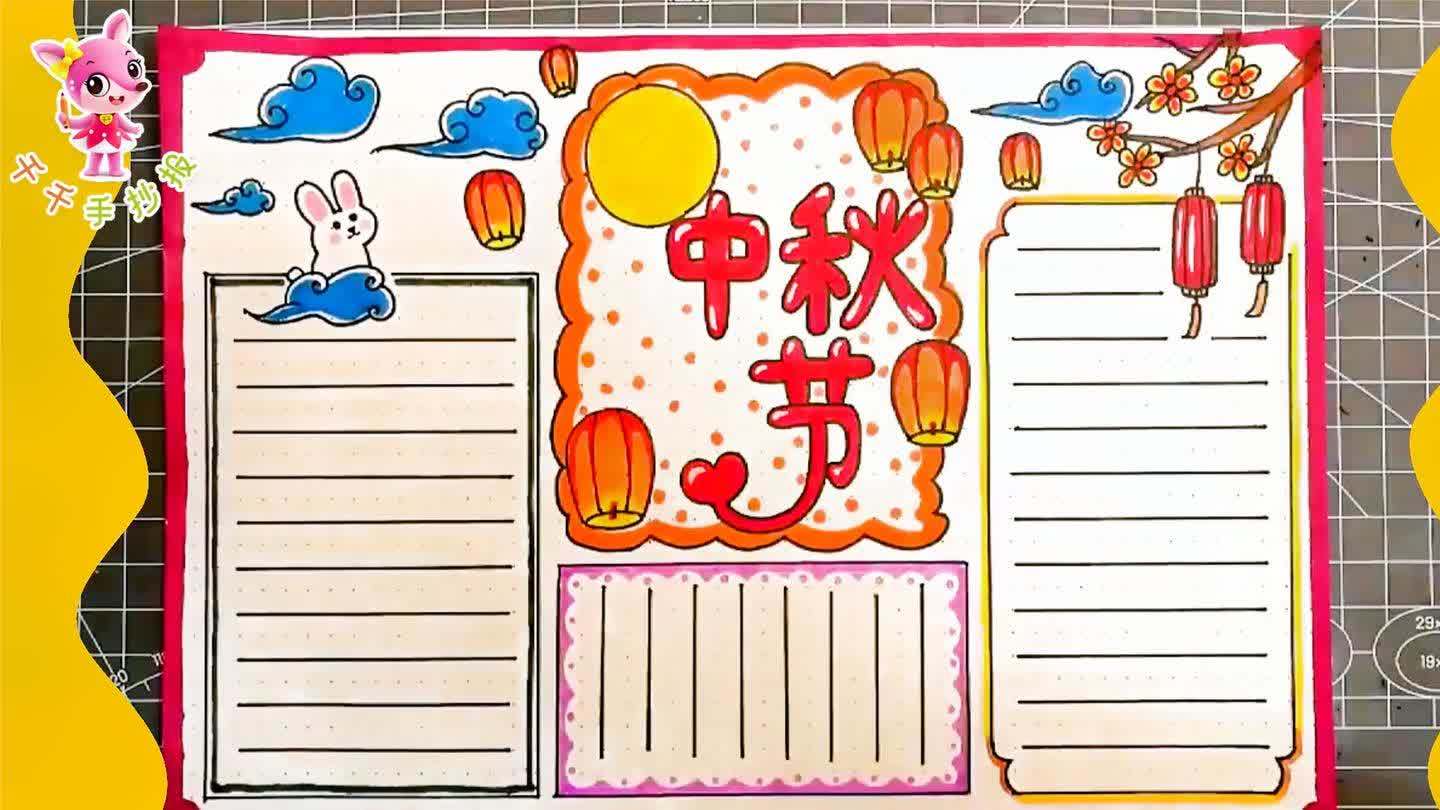 千千手抄报
中秋
节
29×
19×
20